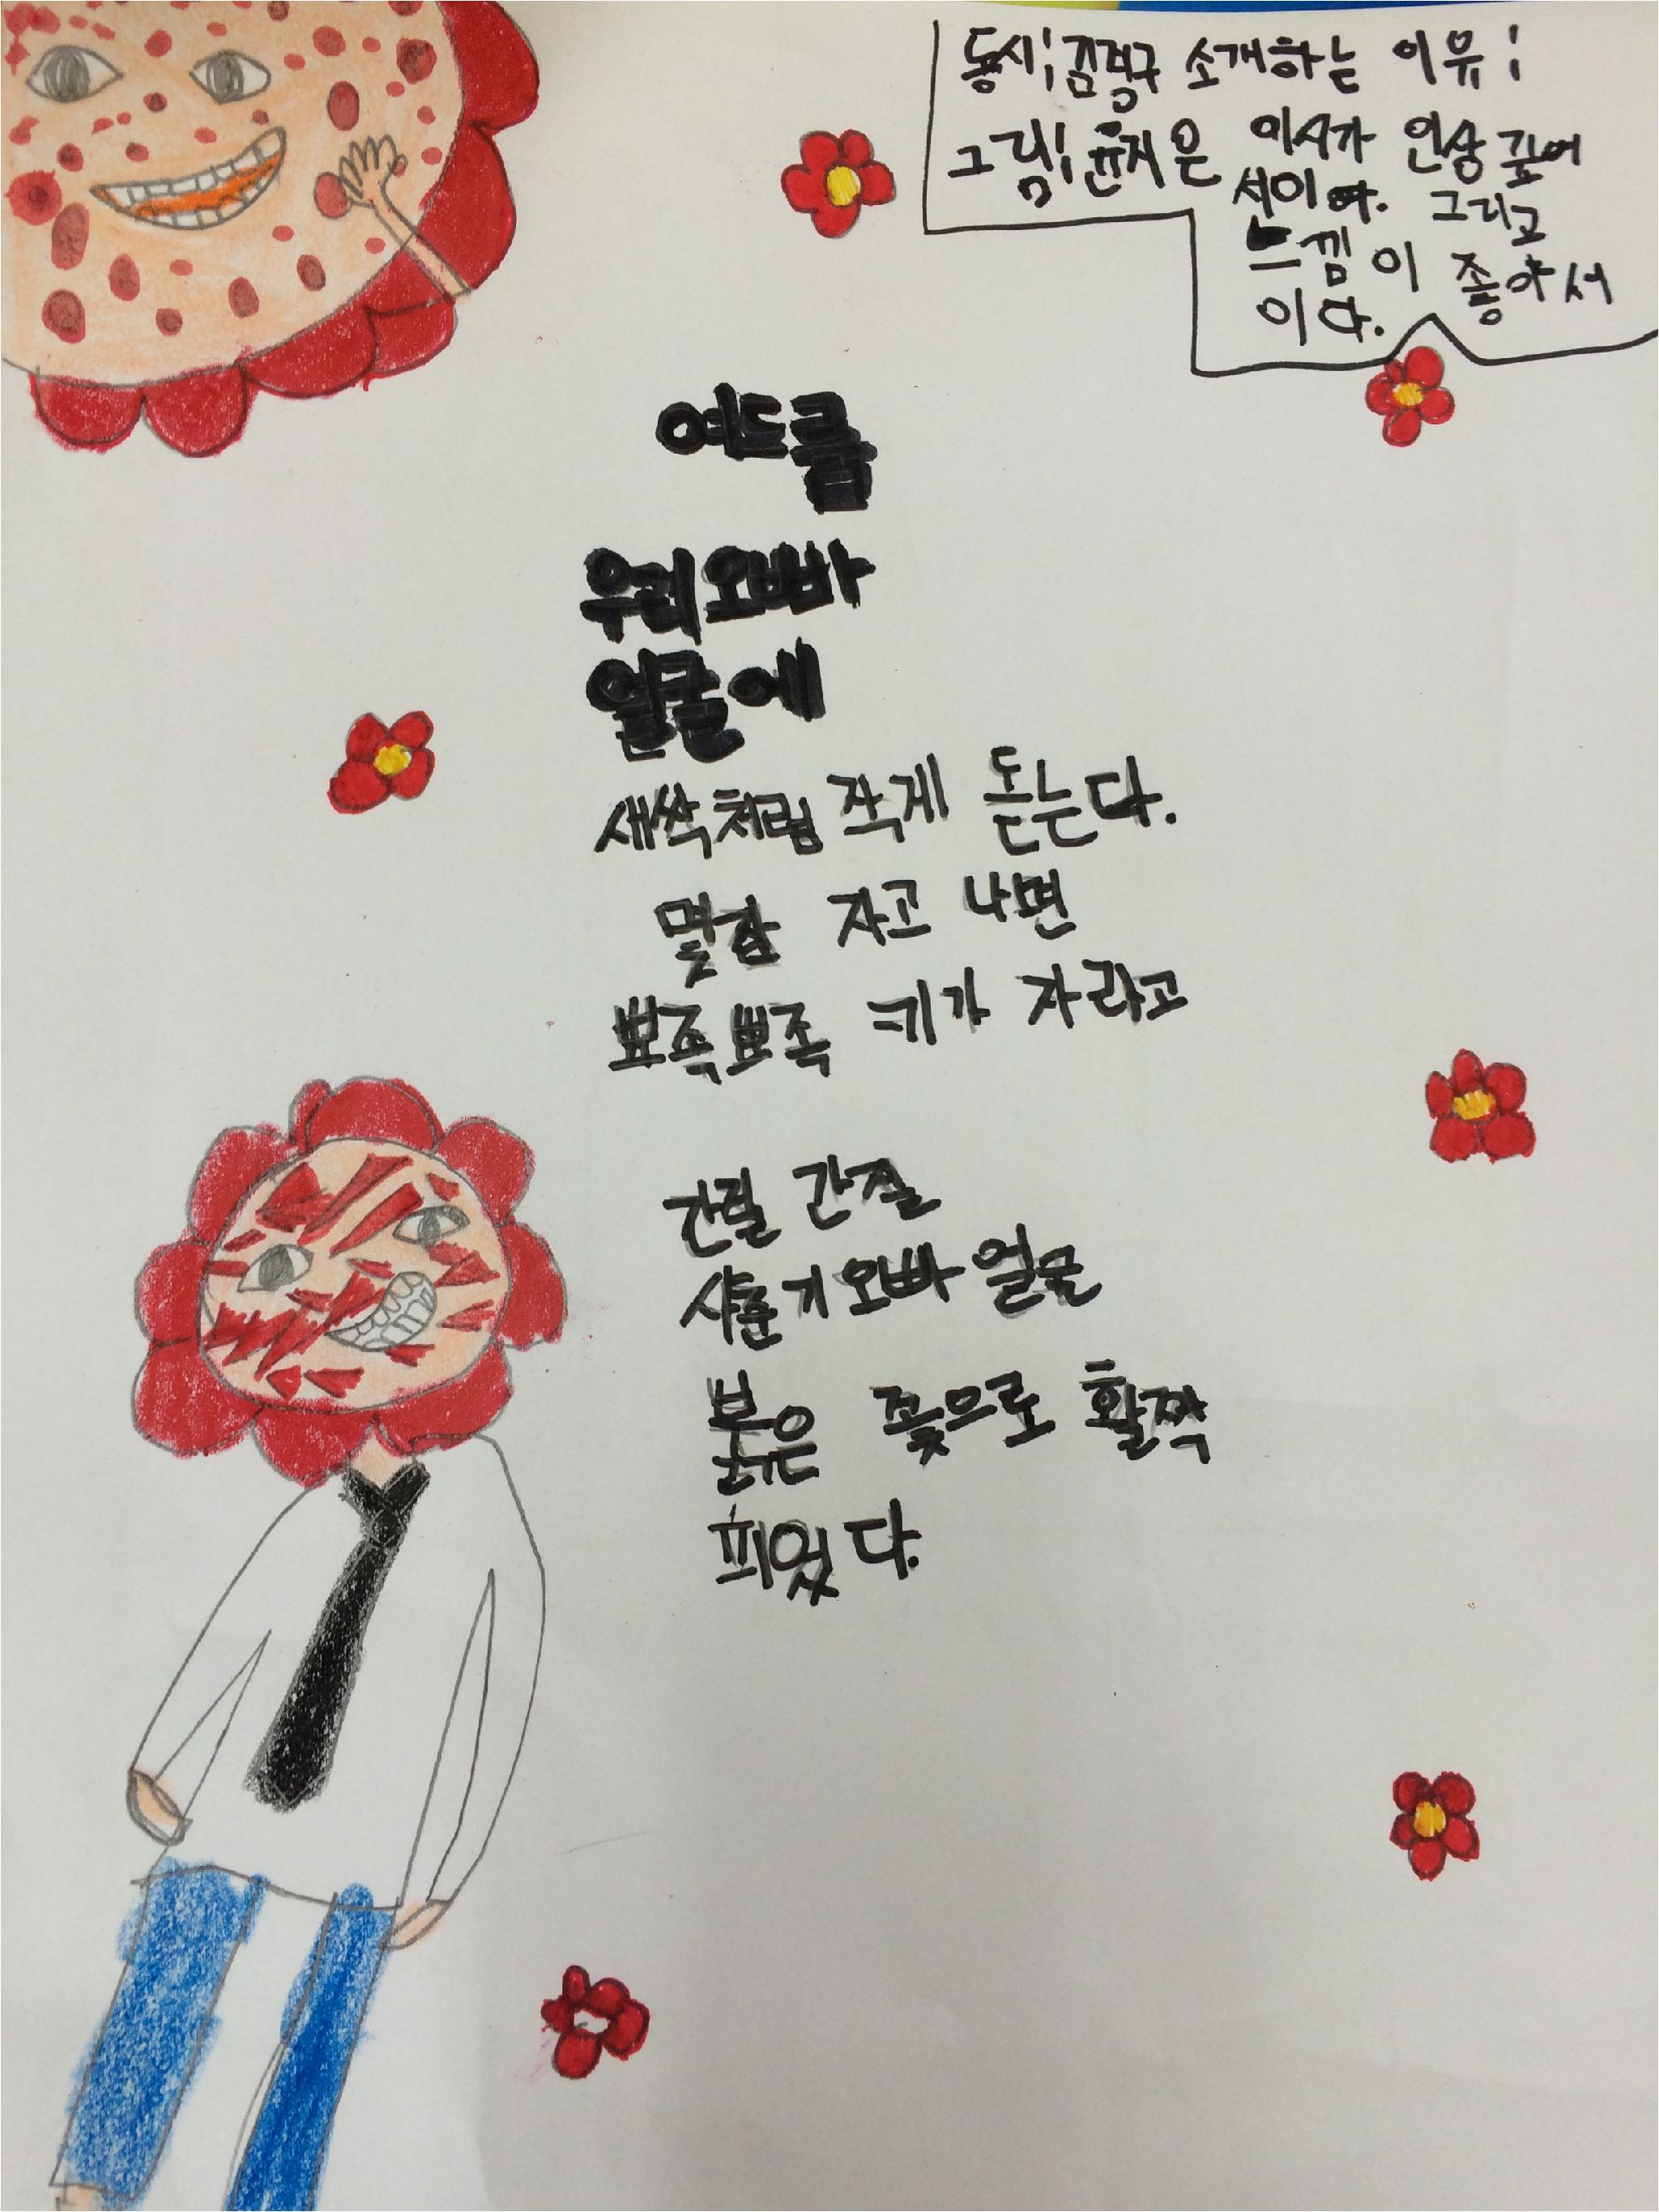 동시:김정구 소개하는 이유:
그림:윤지은 이시가 인상 깊어
서이다. 그리고
느낌이 좋아서
이다.
여드름
우리오빠
얼굴에
새싹처럼 작게 돋는다.
몇밤 자고 나면
뾰족뾰족 키가 자라고
간질 간질
사춘기오빠 얼굴
붉은 꽃으로 활짝
피었다.